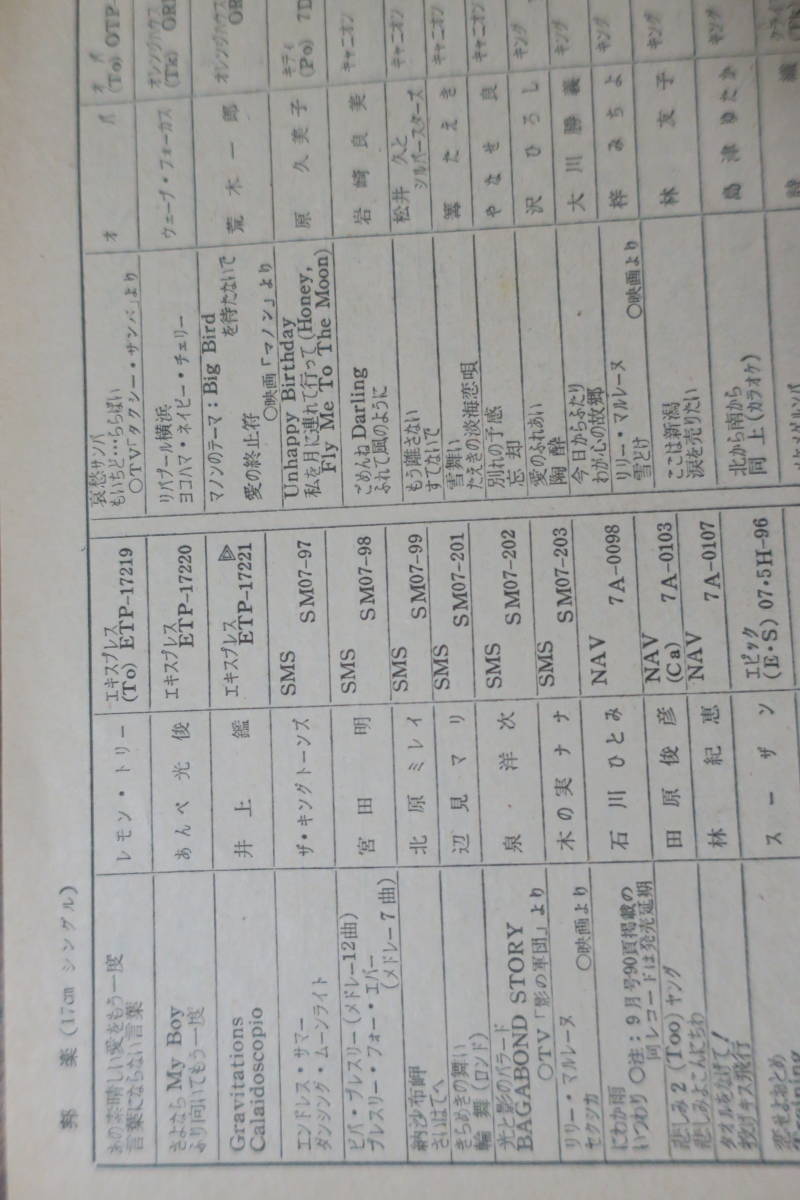 邦楽 (17㎝ シングル)
あの素晴しい愛をもう一度
言葉にならない言葉
レモン・トリー
エキスプレス
(To) ETP-17219
さよなら My Boy
ふり向いてもう一度
あんべ光俊
エキスプレス
ETP-17220
Gravitations
Calaidoscopio
井上鑑
エキスプレス
ETP-17221
エンドレス・サマー
ダンシング・ムーンライト
ザ・キングトーンズ
SMS SM07-97
ビバ・プレスリー (メドレー12曲)
プレスリー・フォー・エバー
(メドレー7曲)
宮田明
SMS SM07-98
納沙布岬
さいはてへ
北原ミレイ
SMS SM07-99
きらめきの舞い
輪舞 (ロンド)
辺見マリ
SMS SM07-201
光と影のバラード
BAGABOND STORY
○TV「影の軍団」より
泉・洋次
SMS SM07-202
リリー・マルレーヌ
セクシカ ○映画より
木の実ナナ
SMS SM07-203
にわか雨
いつわり ○注:9月号90頁掲載の
同レコードは発売延期
石川ひとみ
NAV 7A-0098
悲しみ2 (Too) ヤング
悲しみよこんにちわ
田原俊彦
NAV
(Ca) 7A-0103
タオルをなげて!
投げキス飛行
林紀恵
NAV 7A-0107
恋せよおとめ
Training
スーザン
エピック
(E・S) 07・5H-96
哀愁サンバ
もいちど…ららばい
○TV「タクシー・サンバ」より
オ パ
オ パ
(To) OTP-
リバプール横浜
ヨコハマ・ネイビー・チェリー
ウェーブ・フォーカス
オレンジハウス
(Tk) ORI
マノンのテーマ:Big Bird
を待たないで
愛の終止符
○映画「マノン」より
荒木一郎
オレンジハウス
OR
Unhappy Birthday
私を月に連れて行って(Honey,
Fly Me To The Moon)
原久美子
キティ
(Po) 7D
ごめんね Darling
ふれて風のように
岩崎良美
キャニオン
もう離さない
すてないで
松井久と
シルバースターズ
キャニオン
雪舞い
たえきの淡海恋唄
たえき
キャニオン
別れの予感
忘却
やなせ良
キャニオン
愛のふれあい
陶酔
沢ひろし
キング
今日からふたり
わが心の故郷
大川勝義
キング
リリー・マルレーヌ
雪どけ ○映画より
梓みちよ
キング
ここは新潟
涙を売りたい
林友子
キング
北から南から
同上(カラオケ)
島津ゆたか
キング